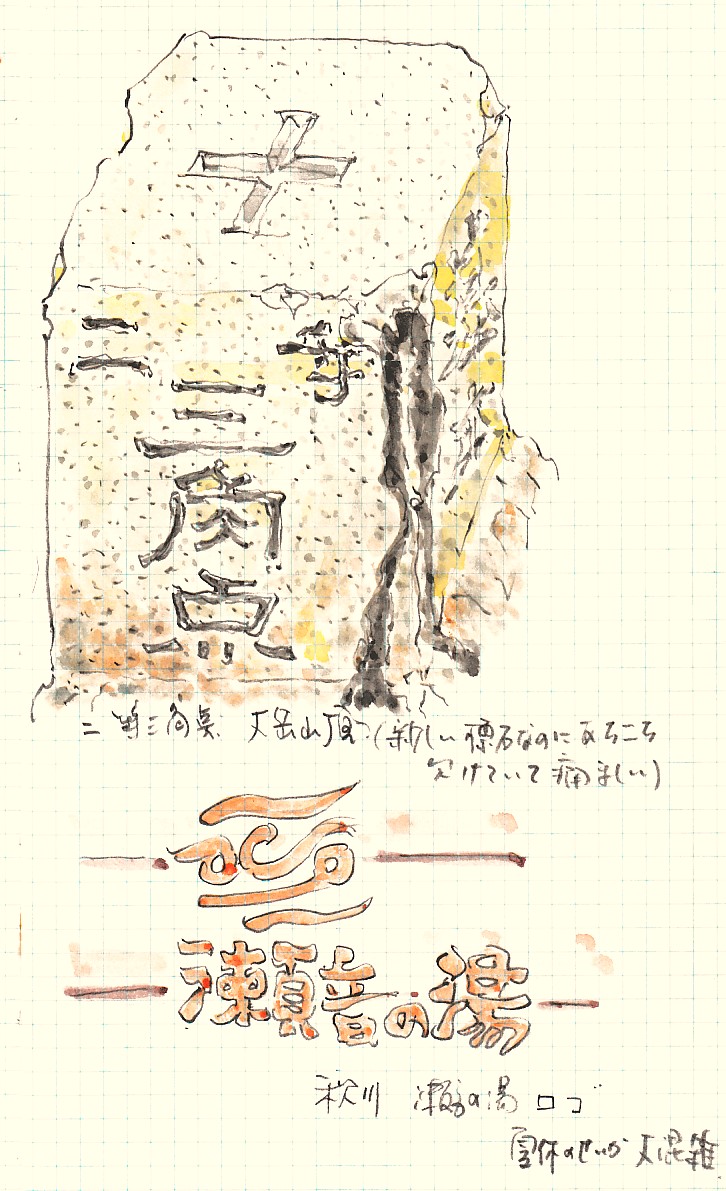 二等
三角点
二等三角点 大岳山頂 (新しい標石なのにあちこち
欠けていて痛ましい)
瀬音の湯
秋川 瀬音の湯 ロゴ
休のせいか 大混雑